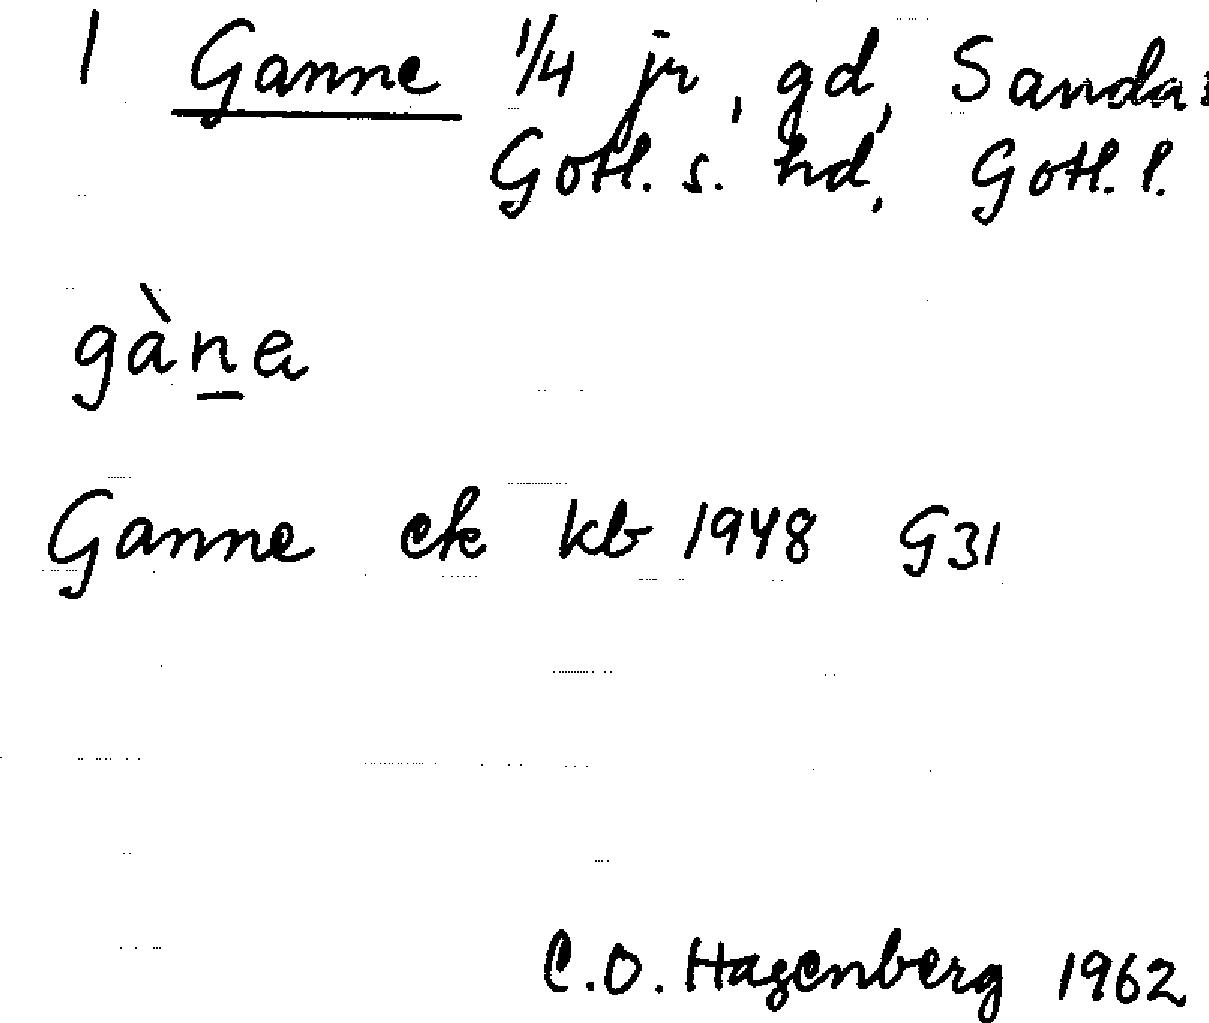 1 Ganne 1/4 jr, gd, Sanda:
Gotl. s. hd, Gotl. l.
gàṉa
Ganne ek kb 1948 G31
C.O. Hagenberg 1962